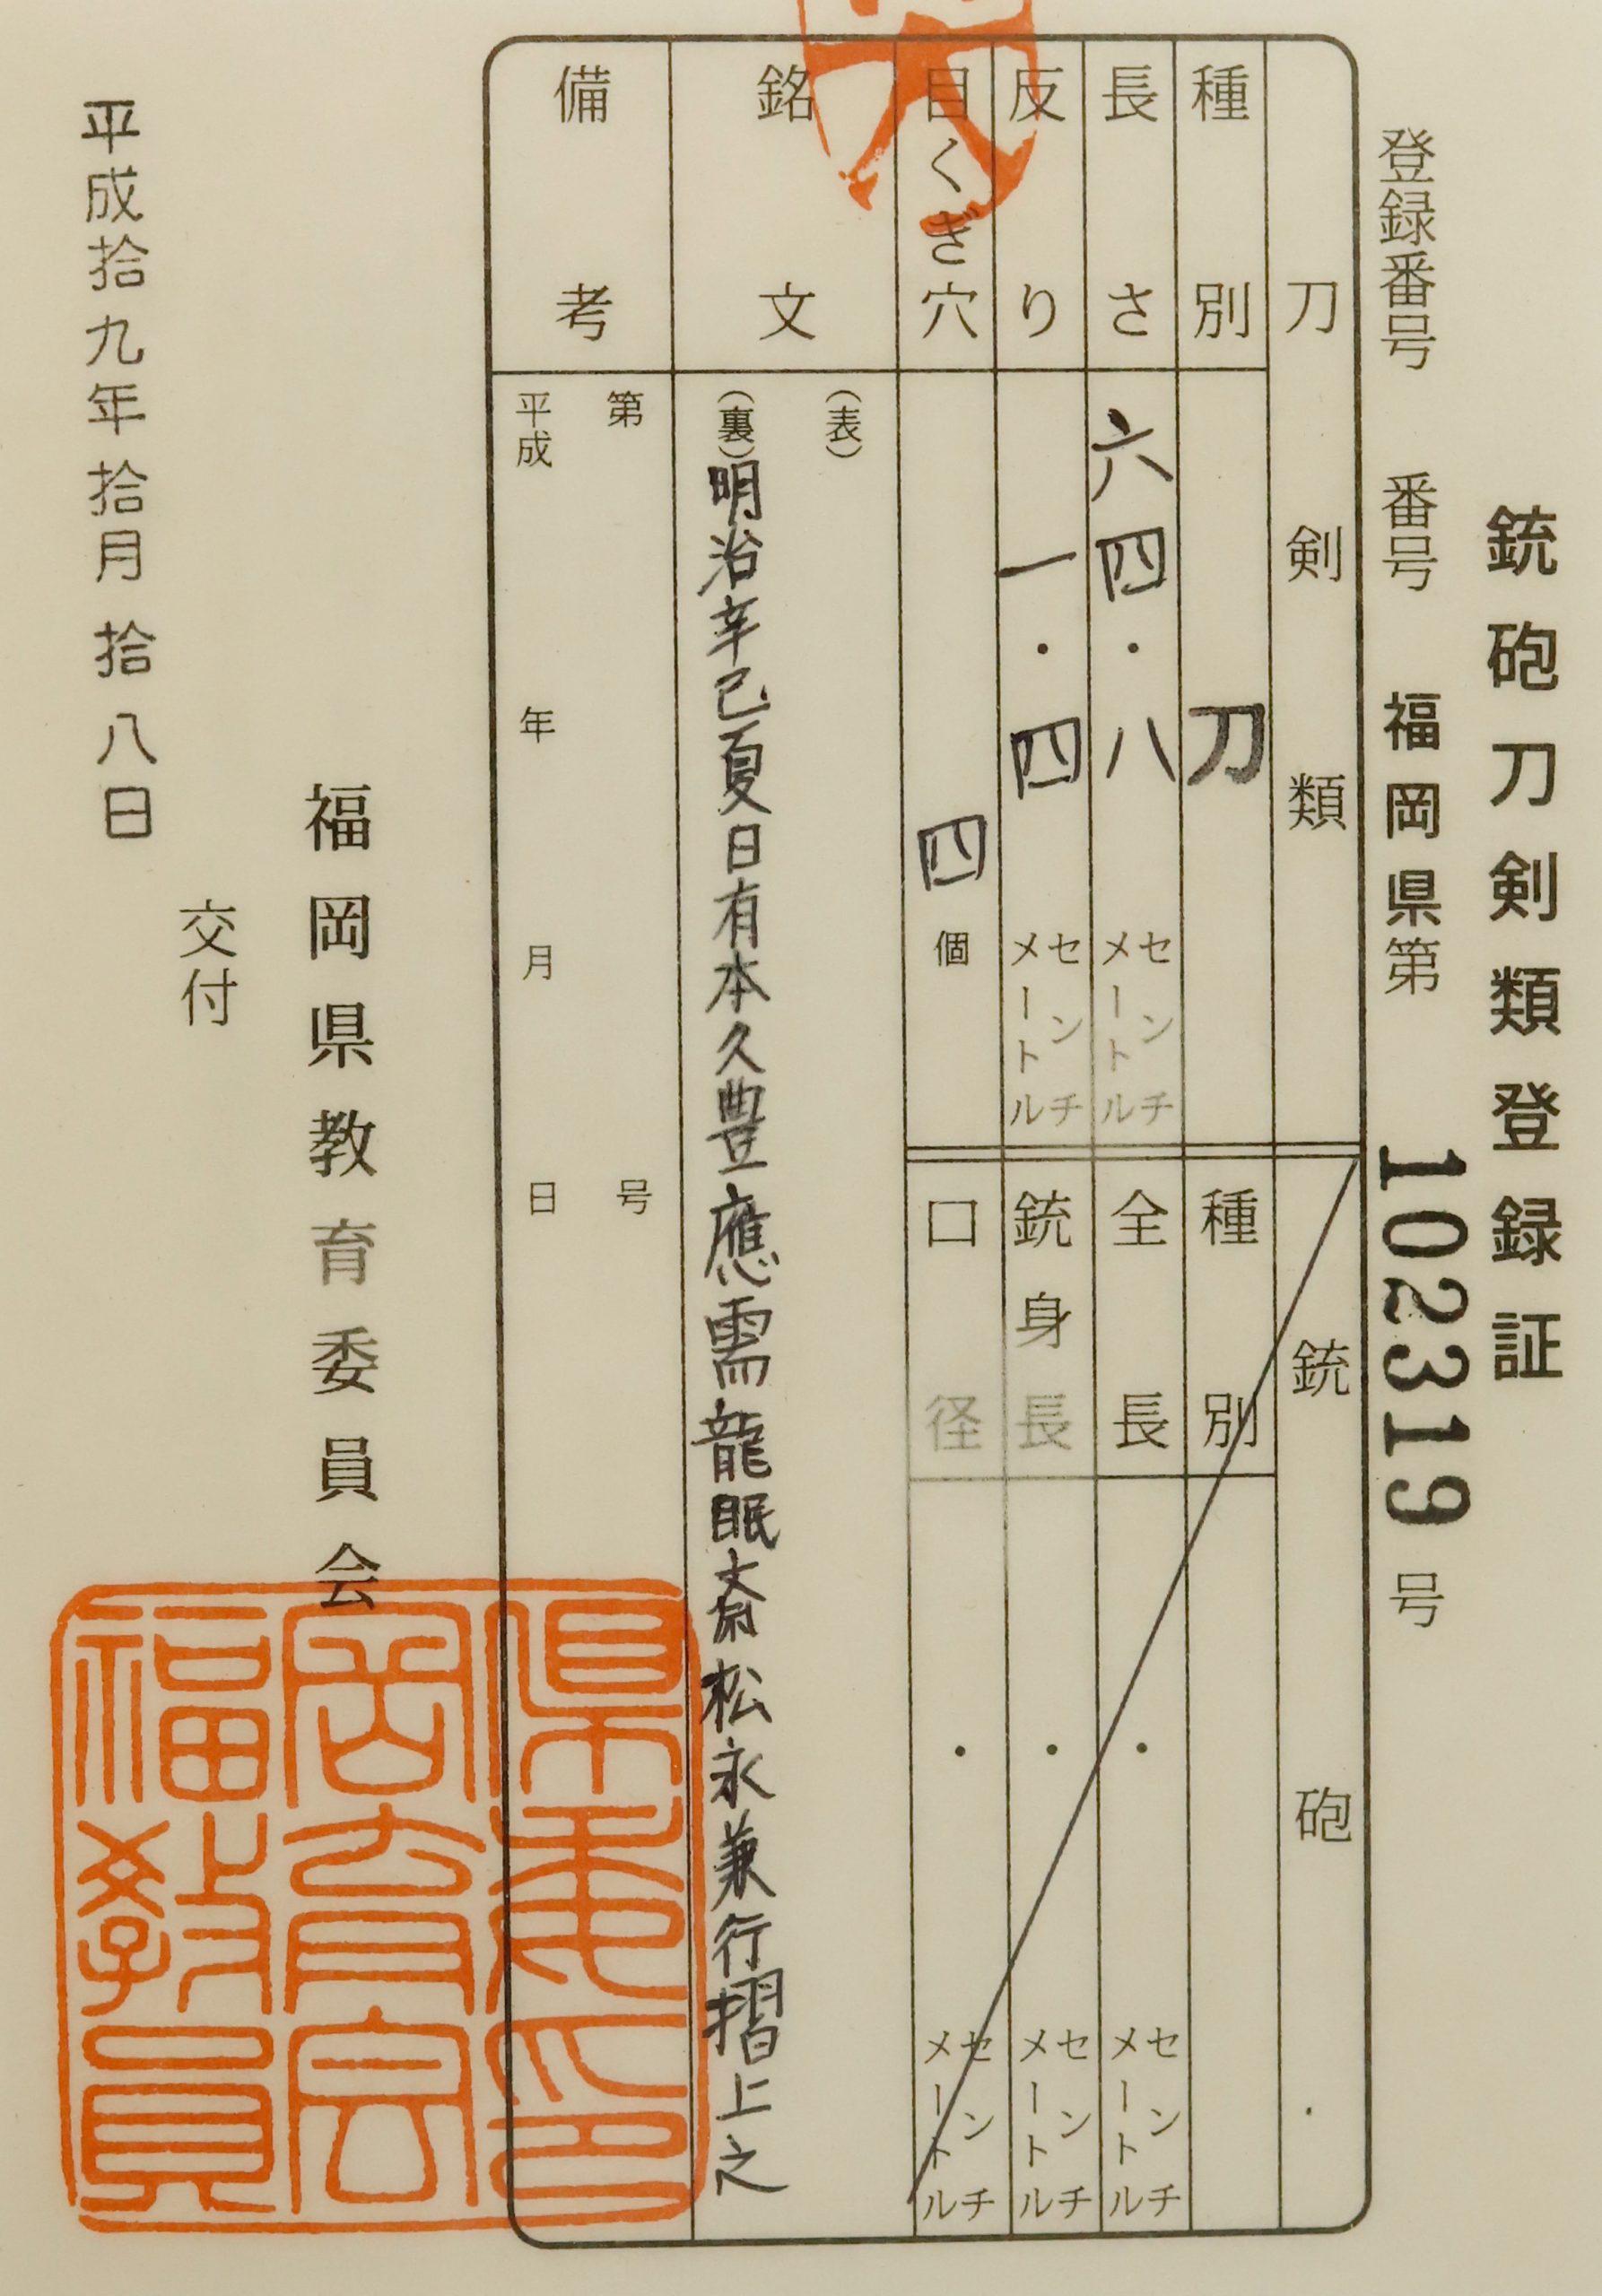 銃砲刀剣類登録証
登録番号 番号 福岡県第 102319 号
刀剣類
種別 刀
長さ 六四・八 センチメートル
反り 一・四 センチメートル
目くぎ穴 四 個
銃砲
種別
全長 ・ センチメートル
銃身長 ・ センチメートル
口径 ・ センチメートル
銘文
(表)
(裏)明治辛巳夏日有本久豊應需龍眠斎松永兼行摺上之
備考
第 号
平成 年 月 日
福岡県教育委員会
交付
平成拾九年拾月拾八日
福岡県
教育委
員会印